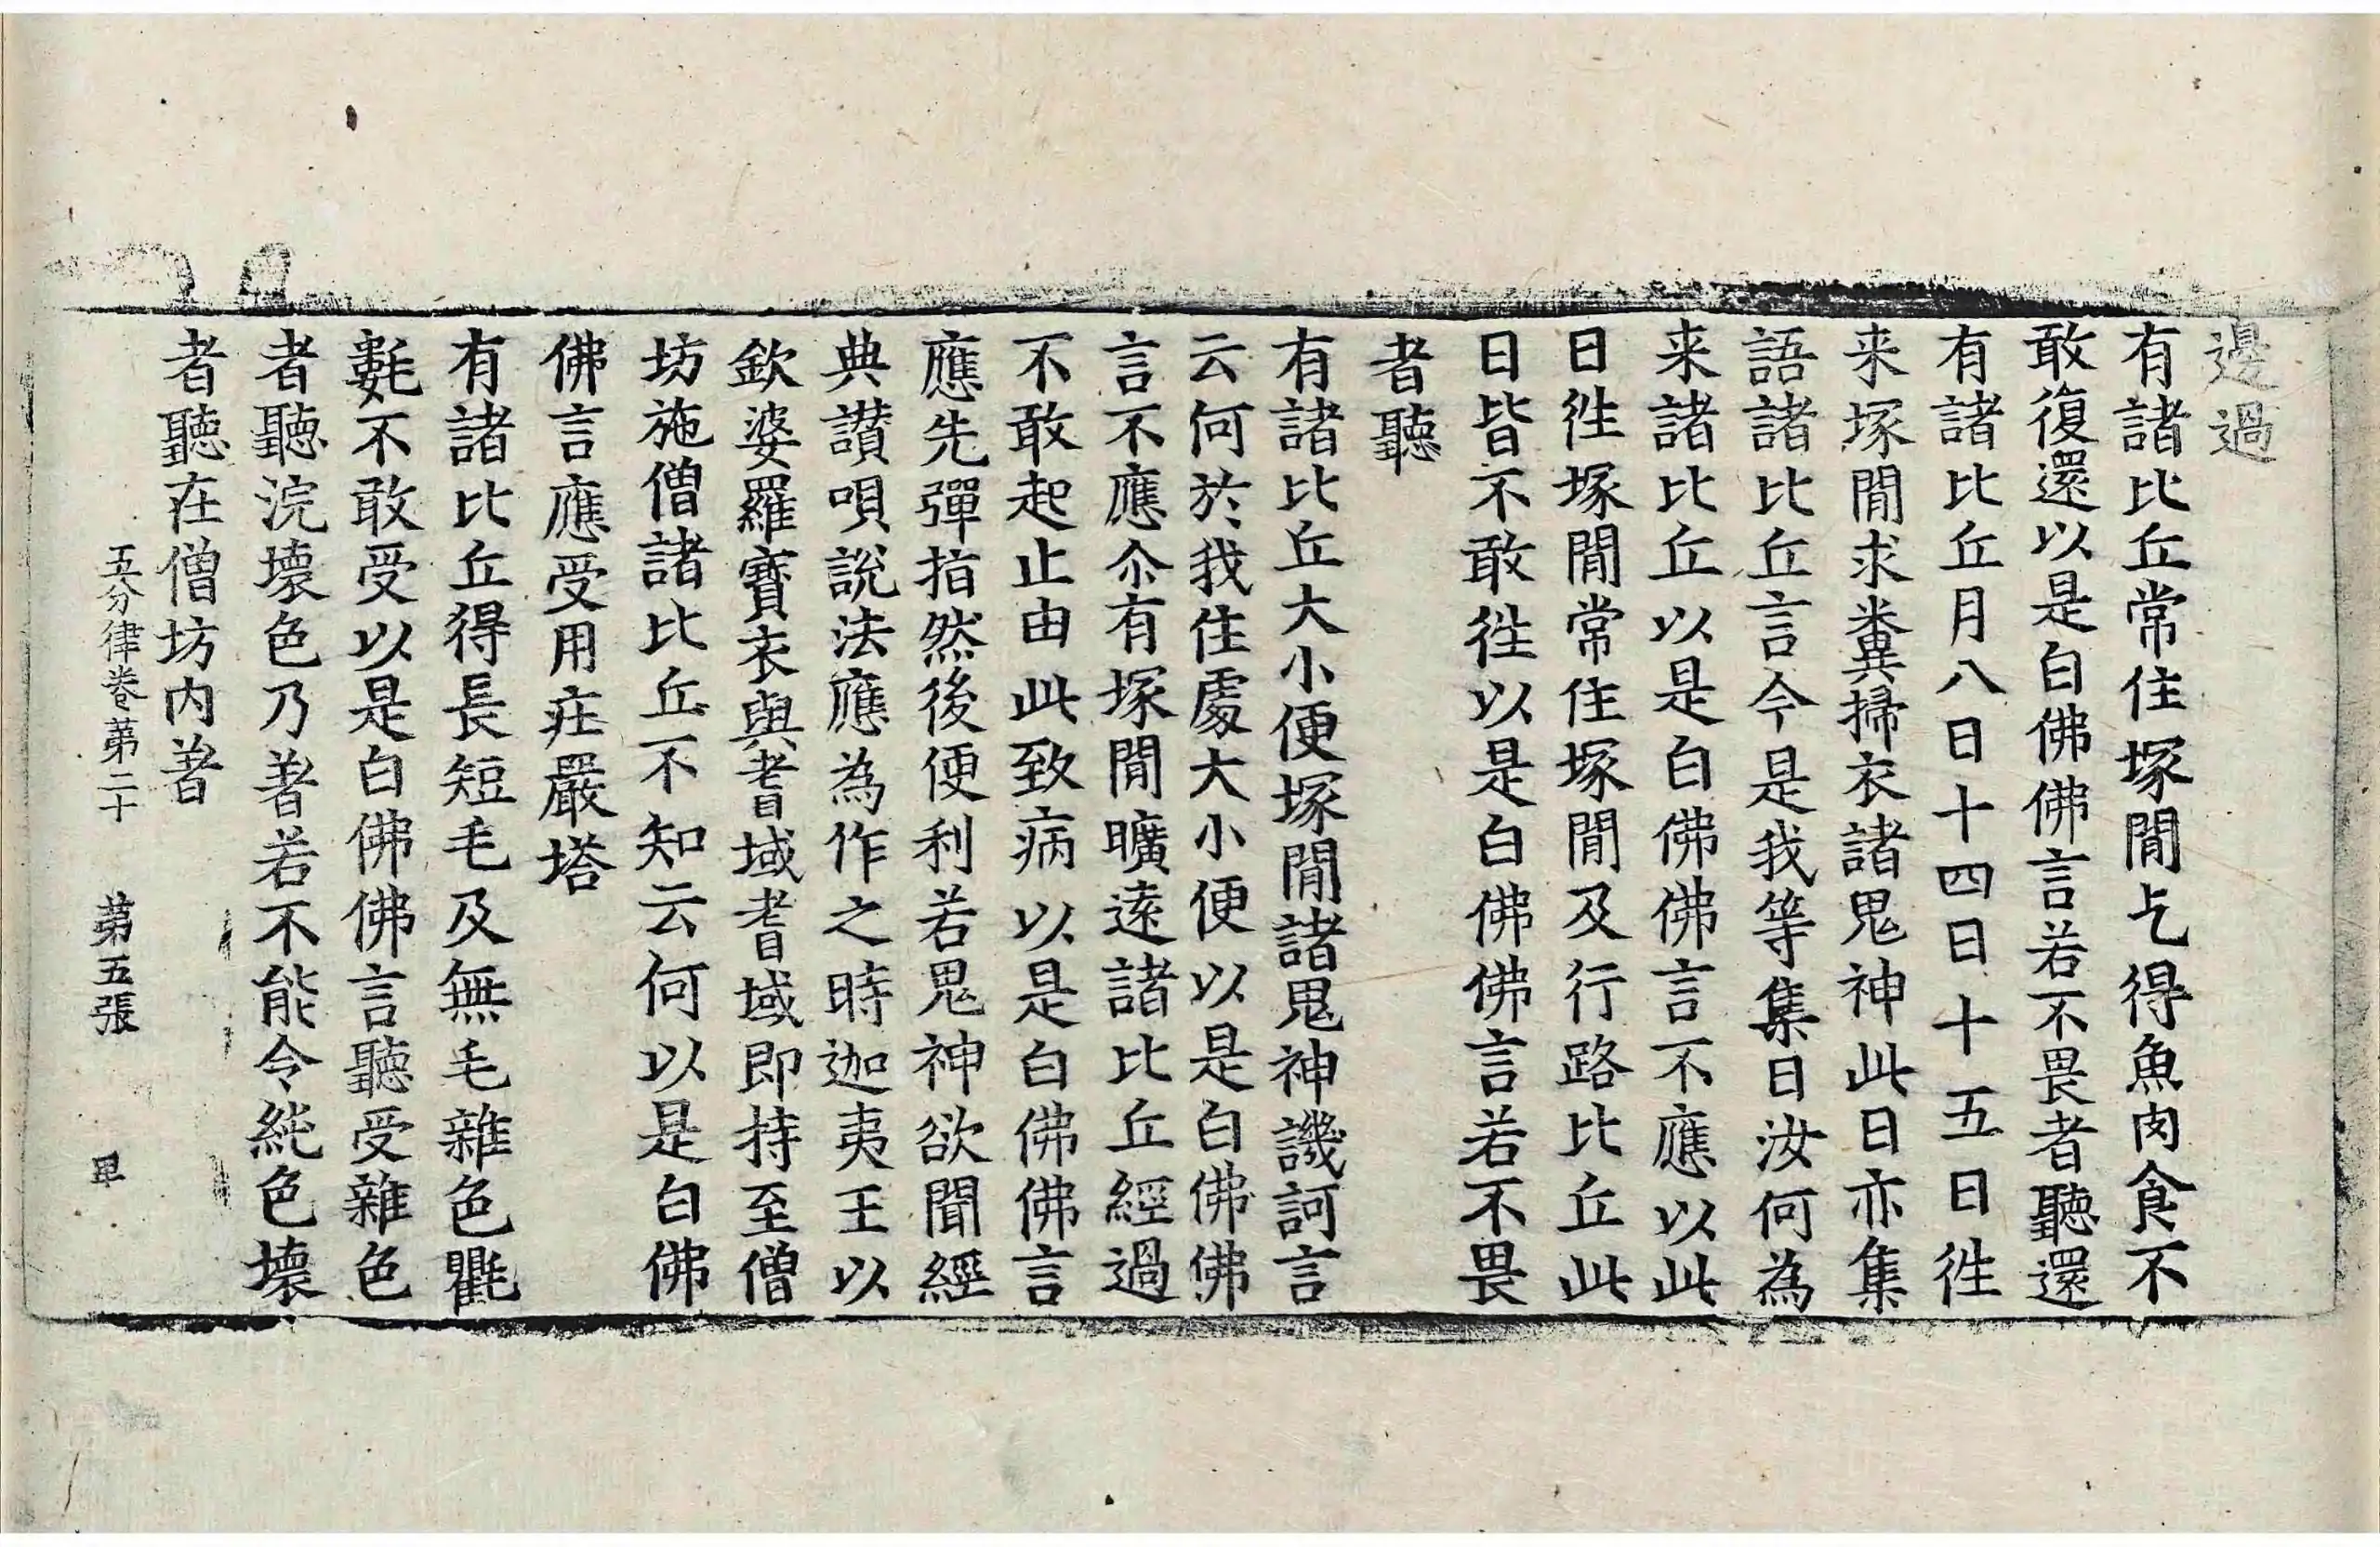 邊過
有諸比丘常住塚閒乞得魚肉食不
敢復還以是白佛佛言若不畏者聽還
有諸比丘月八日十四日十五日徃
来塚閒求糞掃衣諸鬼神此日亦集
語諸比丘言今是我等集日汝何為
来諸比丘以是白佛佛言不應以此
日徃塚閒常住塚閒及行路比丘此
日皆不敢徃以是白佛佛言若不畏
者聽
有諸比丘大小便塚閒諸鬼神譏訶言
云何於我住處大小便以是白佛佛
言不應尒有塚閒曠遠諸比丘經過
不敢起止由此致病以是白佛佛言
應先彈指然後便利若鬼神欲聞經
典讃唄說法應為作之時迦夷王以
欽婆羅寶衣與耆域耆域即持至僧
坊施僧諸比丘不知云何以是白佛
佛言應受用莊嚴塔
有諸比丘得長短毛及無毛雜色氍
氀不敢受以是白佛佛言聽受雜色
者聽浣壞色乃著若不能令純色壞
者聽在僧坊內著
五分律卷第二十 第五張